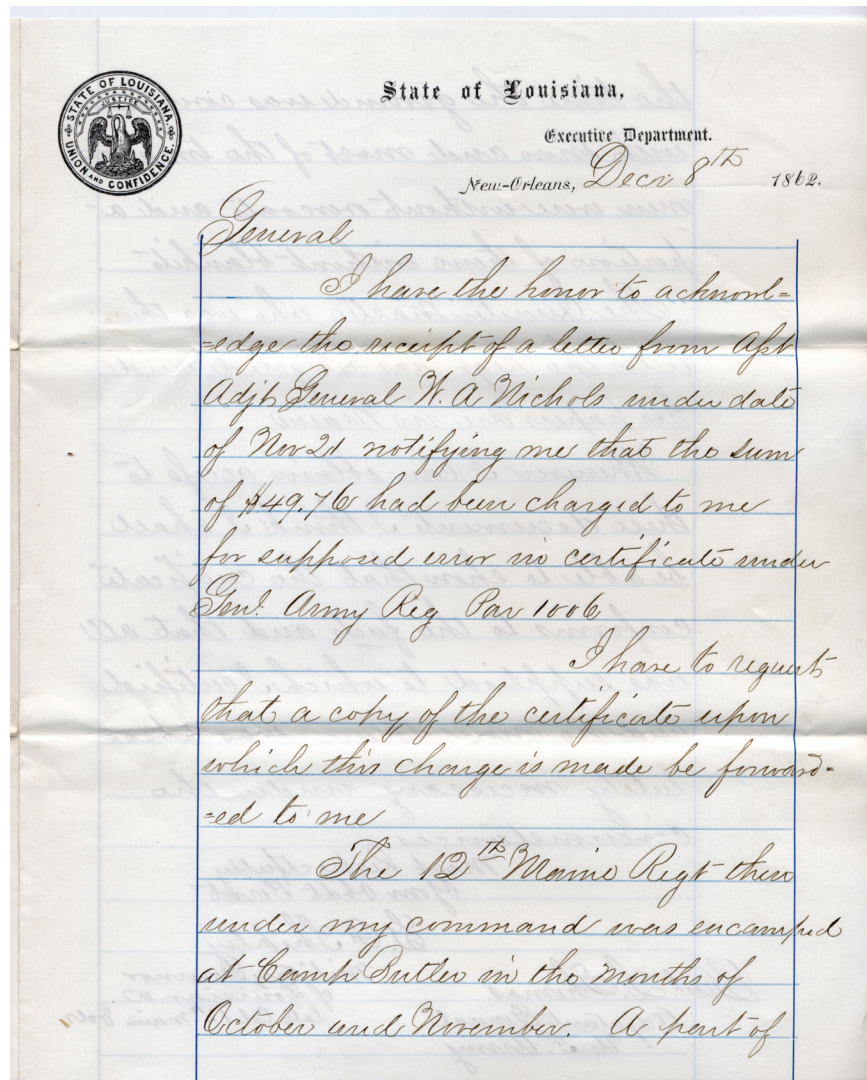 STATE OF LOUISIANA.
JUSTICE
UNION AND CONFIDENCE.
State of Louisiana,
Executive Department.
New-Orleans, Decr 8th 1862.
General
I have the honor to acknowl=
=edge the receipt of a letter from Asst
Adjt General W. A Nichols under date
of Nov 21 notifying me that the sum
of $49.76 had been charged to me
for supposed error in certificate under
Genl. Army Reg Par 1006
I have to request
that a copy of the certificate upon
which this charge is made be forward=
=ed to me
The 12th Maine Regt then
under my command was encamped
at Camp Butler in the months of
October and November. A part of